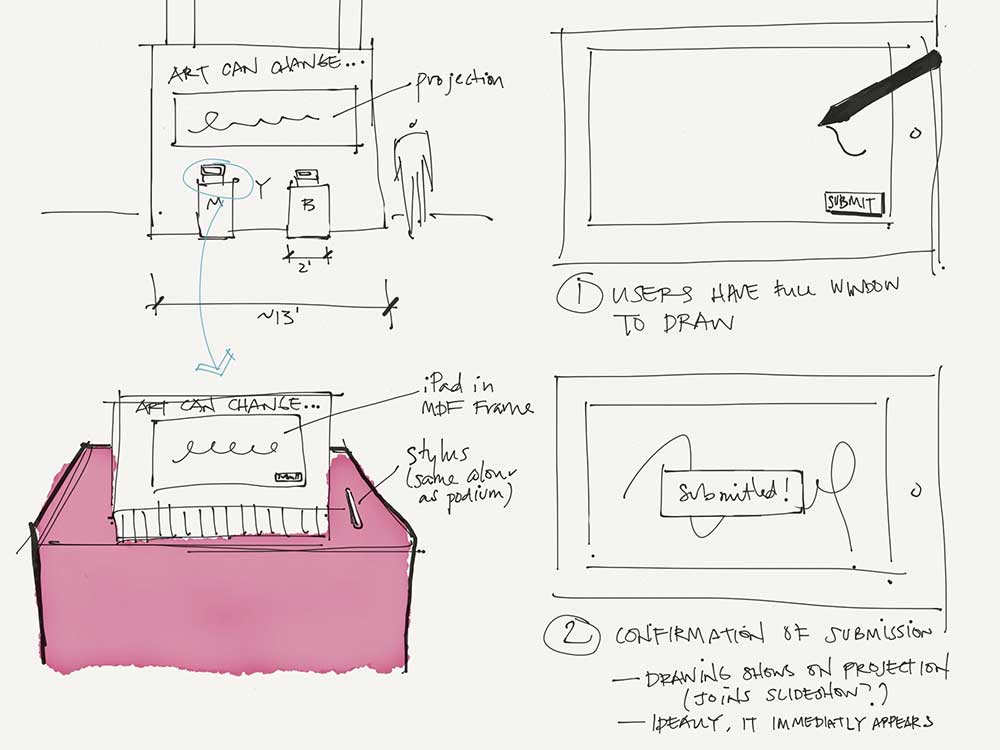 ART CAN CHANGE...
projection
M
Y
B
2'
~13'
ART CAN CHANGE...
iPad in
MDF Frame
stylus
(same colour
as podium)
SUBMIT
1 USERS HAVE FULL WINDOW
TO DRAW
Submitted!
2 CONFIRMATION OF SUBMISSION
— DRAWING SHOWS ON PROJECTION
(JOINS SLIDESHOW?)
— IDEALLY, IT IMMEDIATLY APPEARS